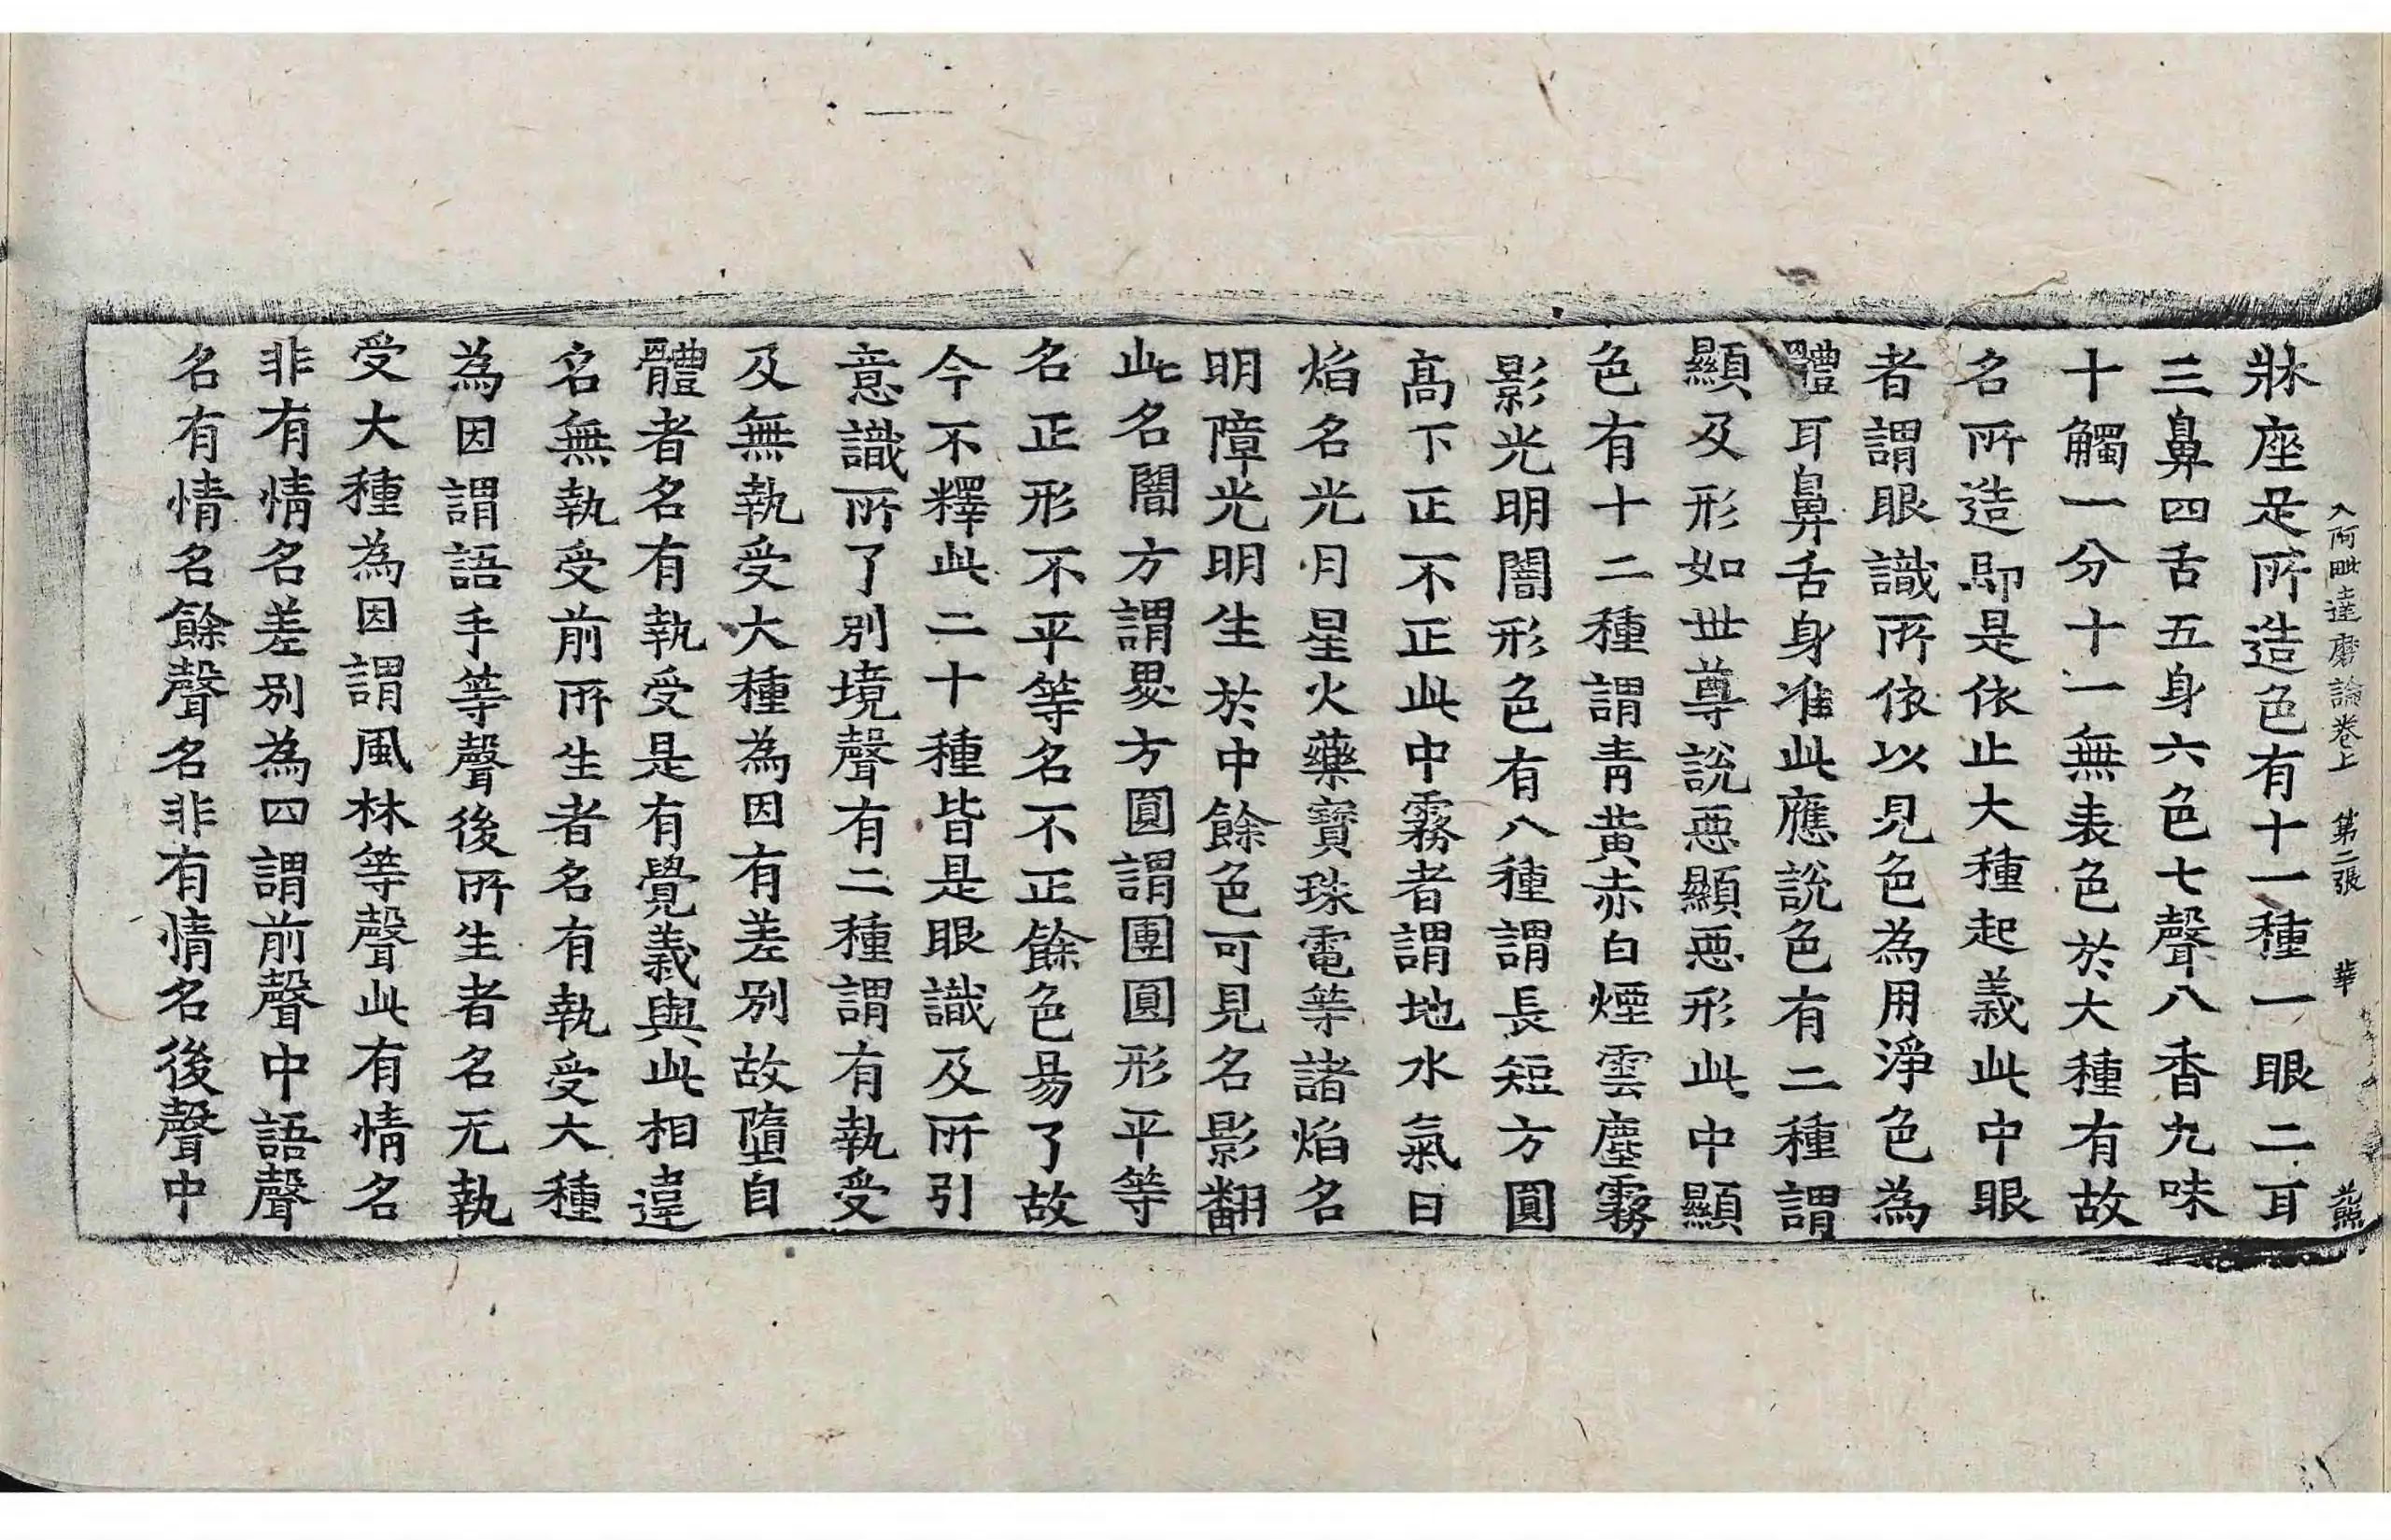 入阿毗達磨論卷上 第二張 華 熊
牀座是所造色有十一種一眼二耳
三鼻四舌五身六色七聲八香九味
十觸一分十一無表色於大種有故
名所造即是依止大種起義此中眼
者謂眼識所依以見色為用淨色為
體耳鼻舌身准此應說色有二種謂
顯及形如世尊說惡顯惡形此中顯
色有十二種謂青黃赤白煙雲塵霧
影光明闇形色有八種謂長短方圓
髙下正不正此中霧者謂地水氣日
焰名光月星火藥寶珠電等諸焰名
明障光明生於中餘色可見名影翻
此名闇方謂畟方圓謂團圓形平等
名正形不平等名不正餘色易了故
今不釋此二十種皆是眼識及所引
意識所了別境聲有二種謂有執受
及無執受大種為因有差別故墮自
體者名有執受是有覺義與此相違
名無執受前所生者名有執受大種
為因謂語手等聲後所生者名无執
受大種為因謂風林等聲此有情名
非有情名差別為四謂前聲中語聲
名有情名餘聲名非有情名後聲中